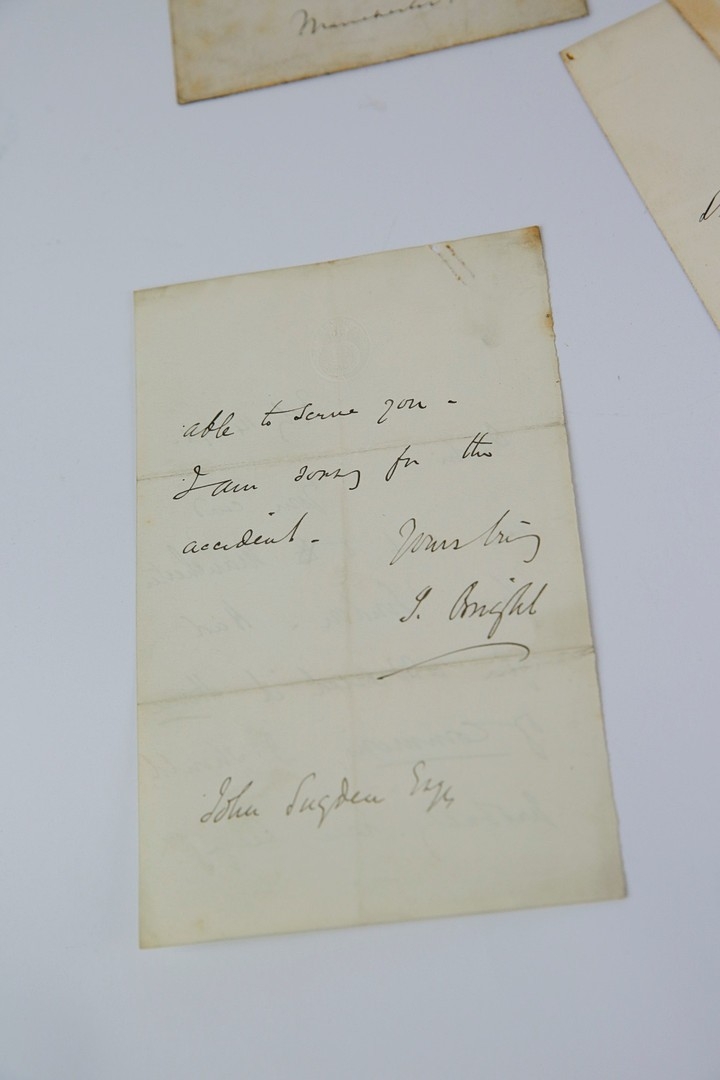 Manchester.
able to serve you -
I am sorry for the
accident. - Yours truly
J. Bright
John Sugden Esq